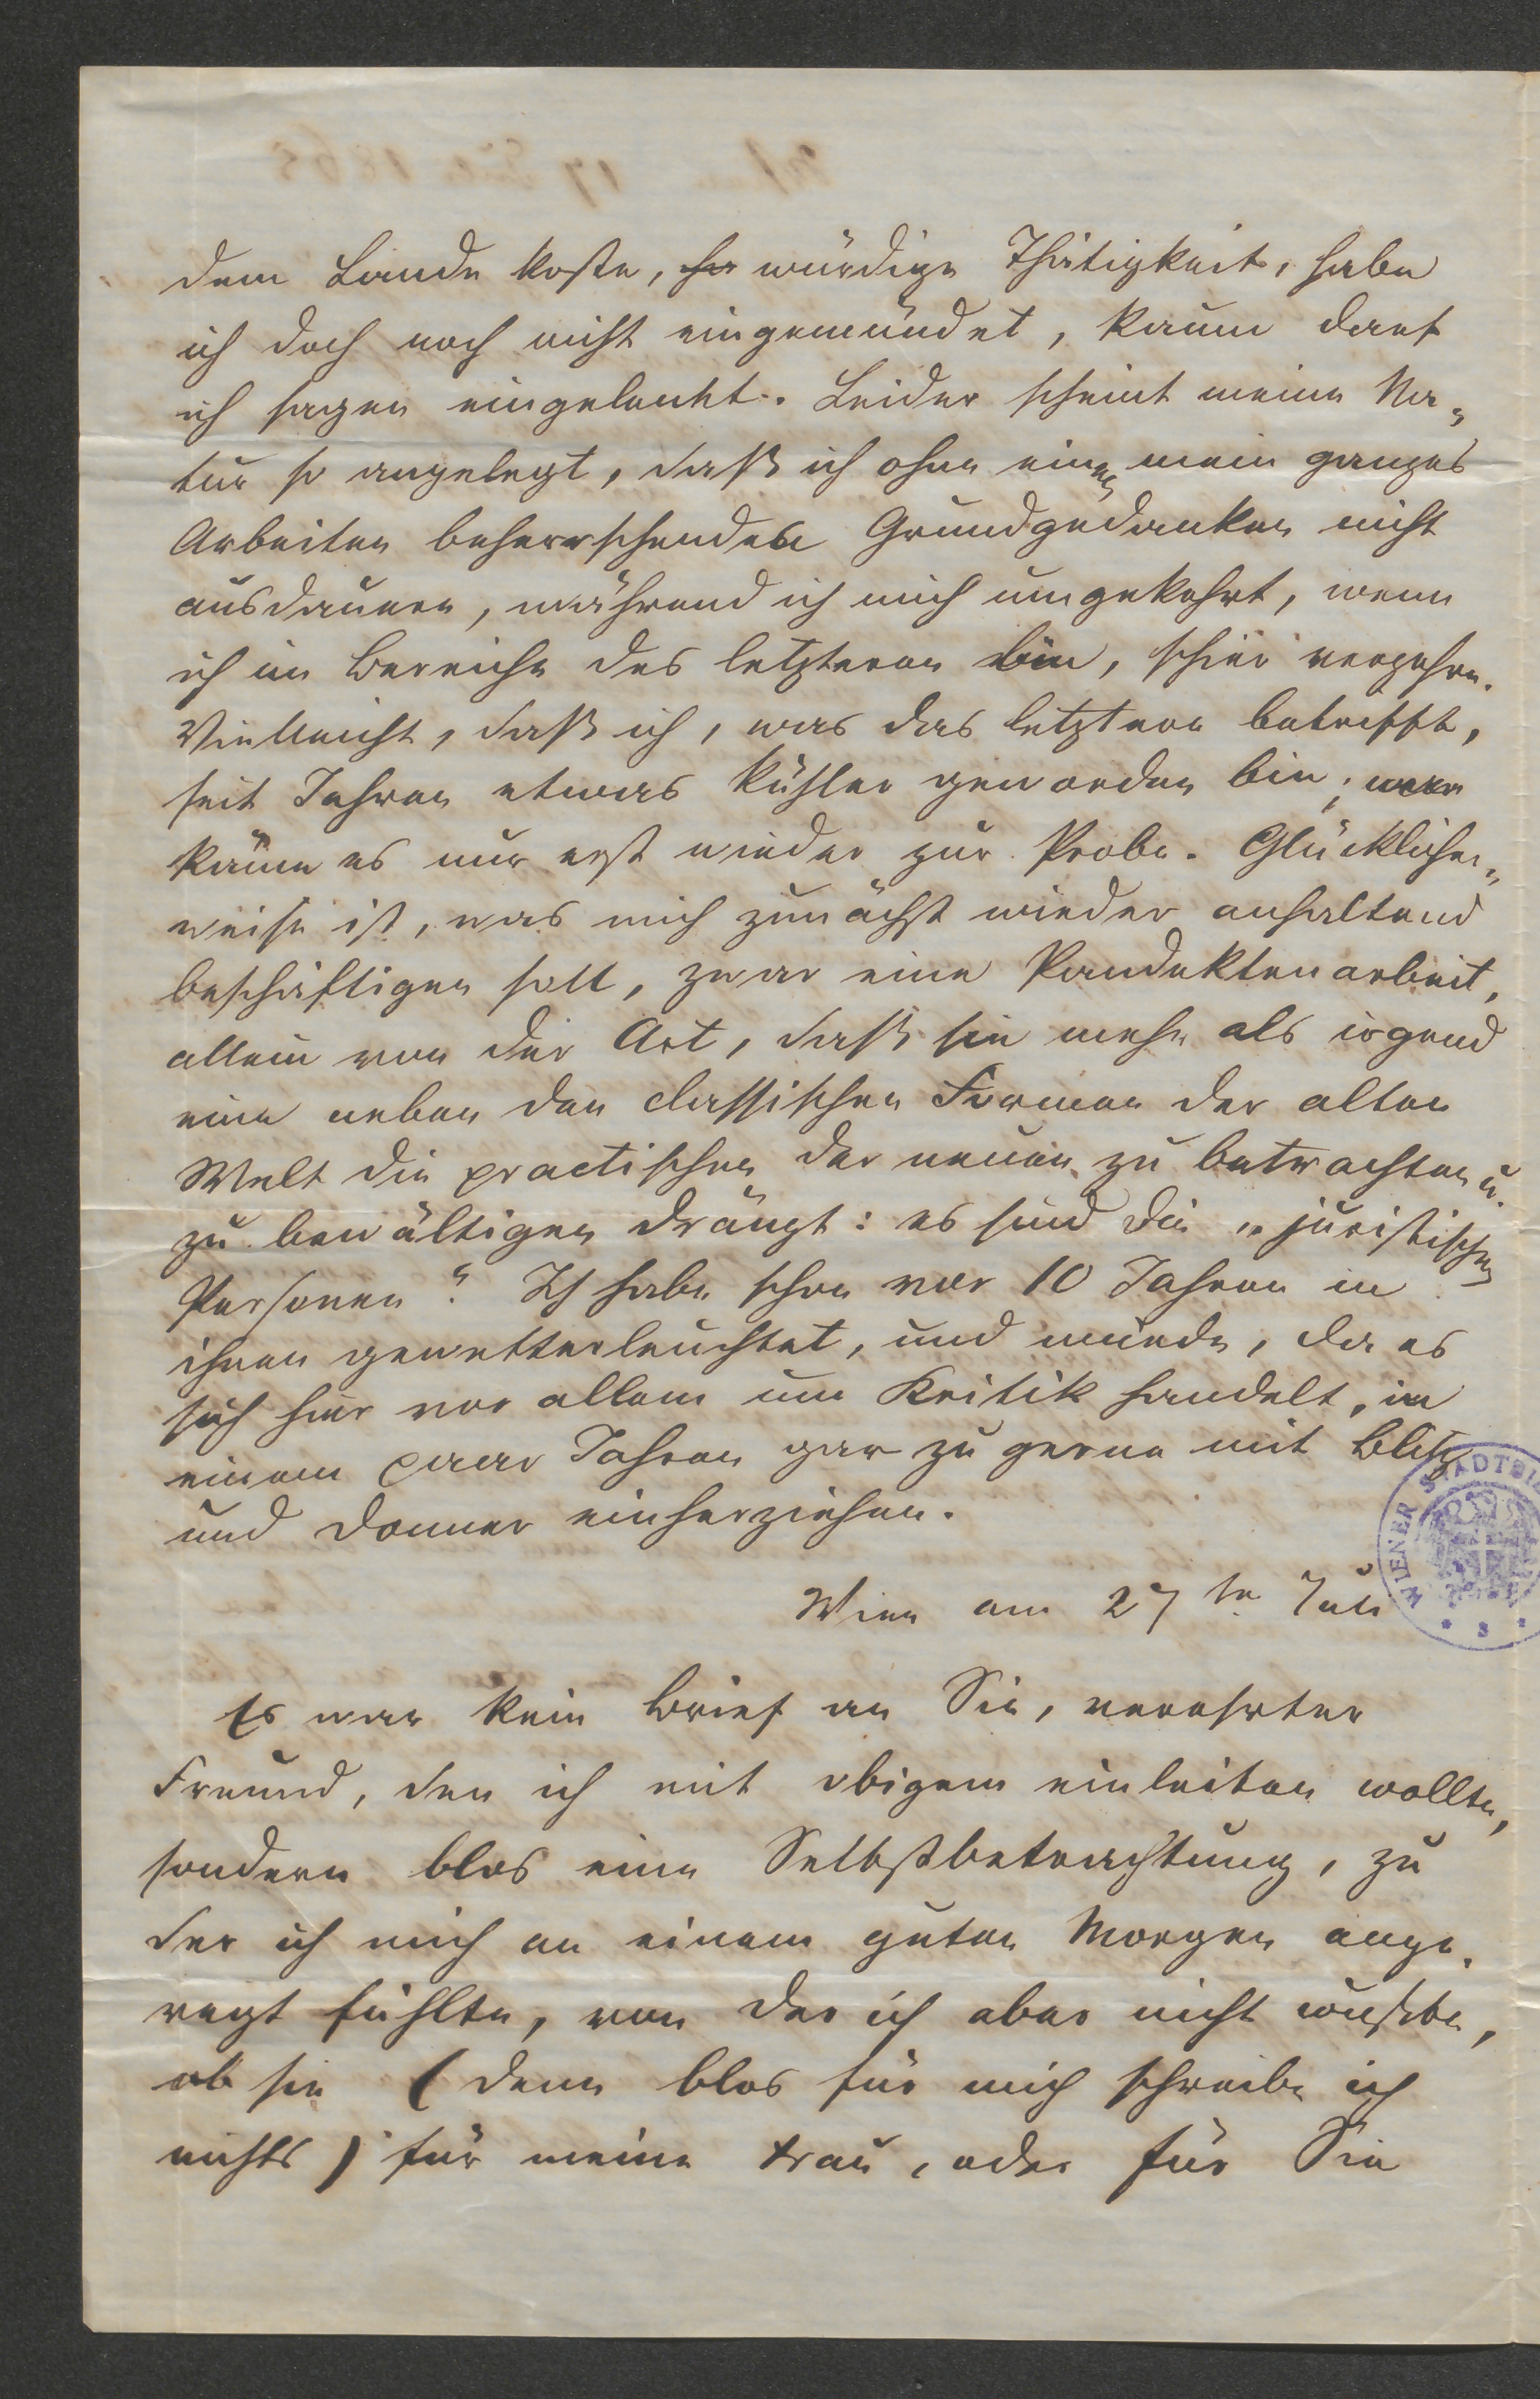 dem Lande koste, ha würdige Thätigkeit, habe
ich doch noch nicht eingemündet, kaum darf
ich sagen eingelenkt. Leider scheint meine Na-
tur so angelegt, daß ich ohne einen mein ganzes
Arbeiten beherrschenden Grundgedanken nicht
ausdauere, während ich mich umgekehrt, wenn
ich im Bereiche des letzteren bin, schier verzehre.
Vielleicht, daß ich, was das letztere betrifft,
seit Jahren etwas kühler geworden bin;
käme es nur erst wieder zur Probe. Glücklicher-
weise ist, was mich zunächst wieder anhaltend
beschäftigen soll, zwar eine Pandektenarbeit,
allein von der Art, daß sie mehr als irgend
eine neben den classischen Formen der alten
Welt die practischen der neuen zu betrachten u.
zu bewältigen drängt: es sind die „juristischen
Personen“. Ich habe schon vor 10 Jahren in
ihnen gewetterleuchtet, und würde, da es
sich hier vor allem um Kritik handelt, in
einem paar Jahren gar zu gerne mit Blitz
und Donner einherziehen.
Wien am 27te Juli
Es war kein Brief an Sie, verehrter
Freund, den ich mit obigem einleiten wollte,
sondern blos eine Selbstbetrachtung, zu
der ich mich an einem guten Morgen ange-
regt fühlte, von der ich aber nicht wußte,
ob sie (denn blos für mich schreibe ich
nichts) für meine Frau, oder für Sie
WIENER STADTBI